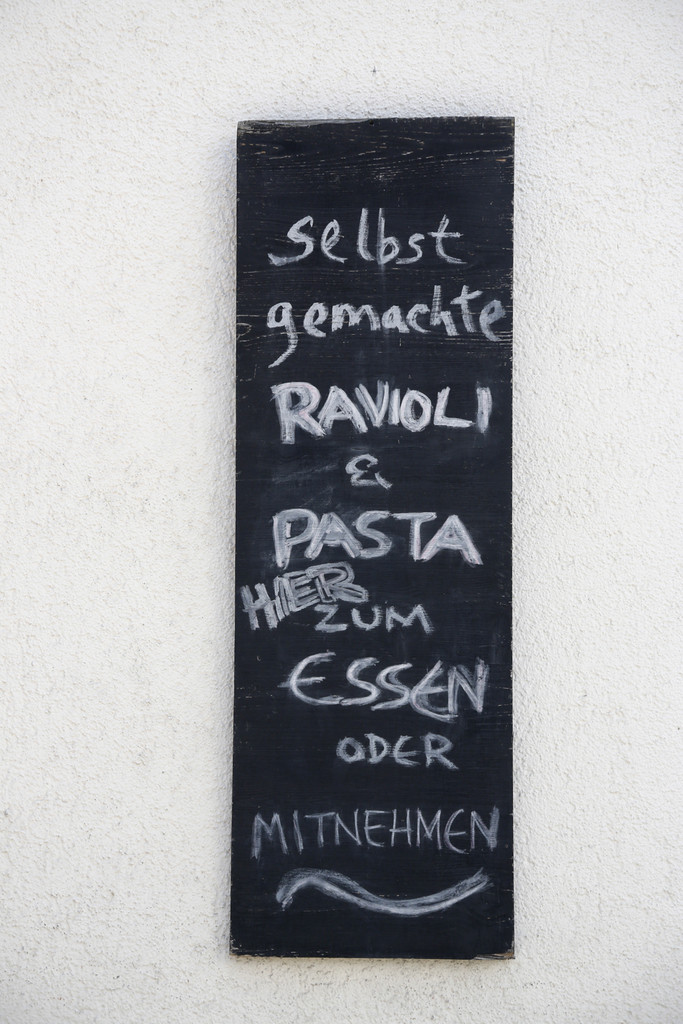 selbst
gemachte
RAVIOLI
&
PASTA
HIER
ZUM
ESSEN
ODER
MITNEHMEN